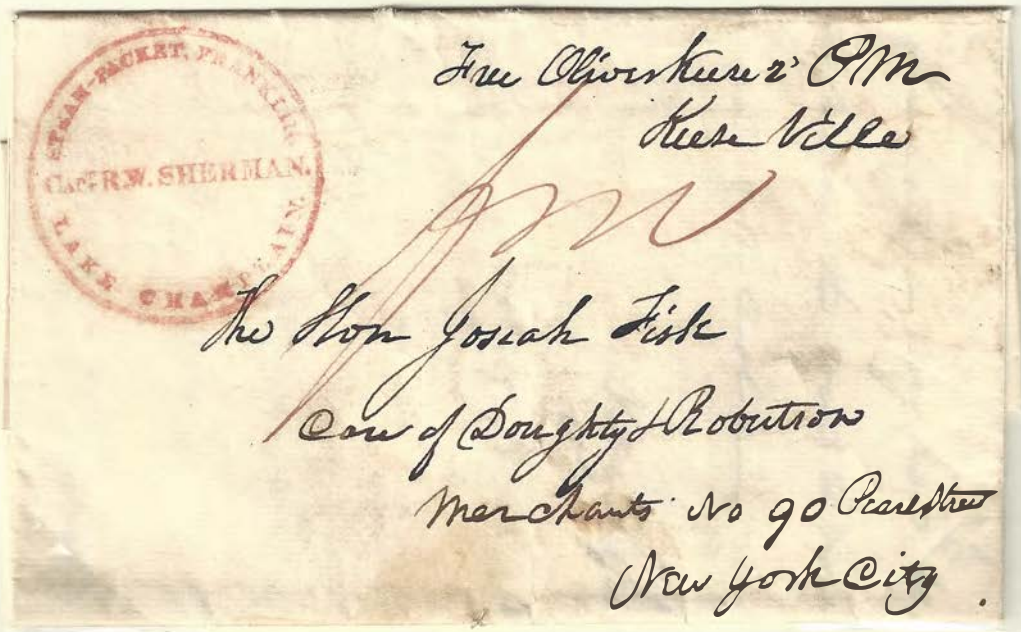 STEAM-PACKET, FRANKLIN
CAPT. R.W. SHERMAN.
LAKE CHAMPLAIN.
Free Oliver Keese 2d PM
Keese Ville
The Hon Josiah Fisk
Care of Doughty & Robertson
Merchants No 90 Pearl Street
New York City